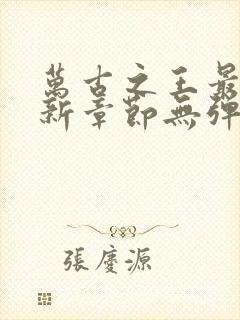 萬古之王最
新章節無彈
張慶源